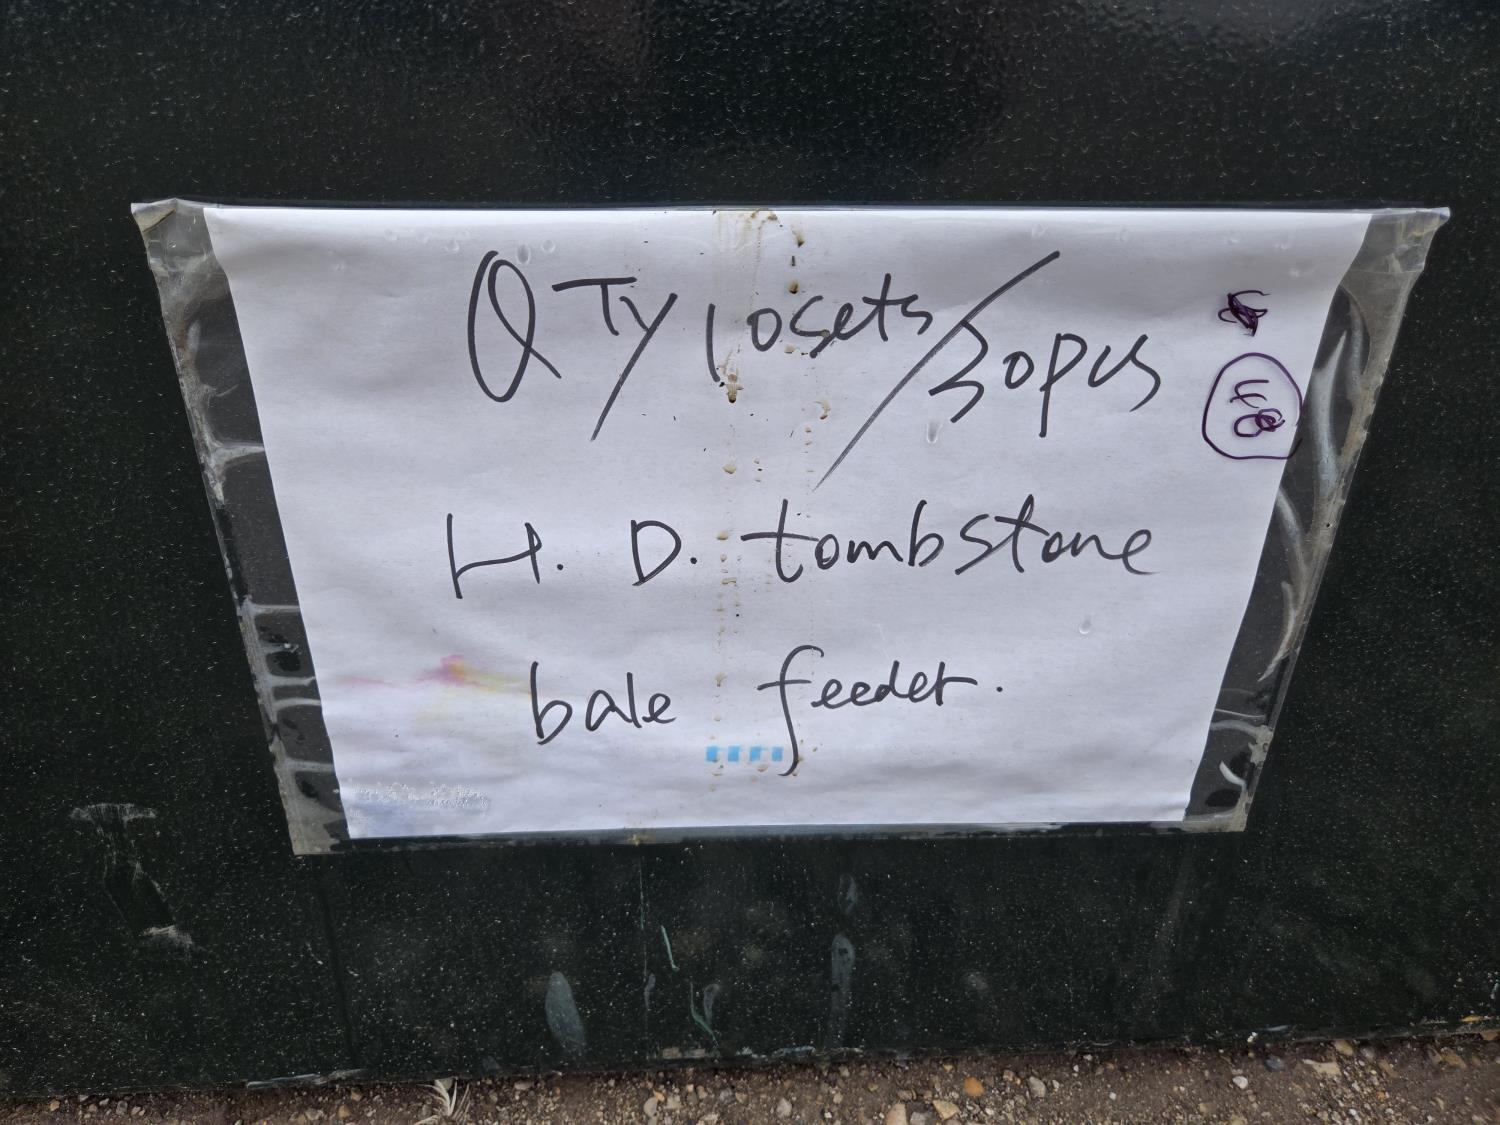 QTY 10sets/30pcs
H. D. tombstone
bale feeder.